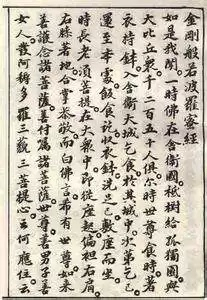 金剛般若波羅蜜經
如是我聞一時佛在舍衛國祇樹給孤獨園與
大比丘眾千二百五十人俱爾時世尊食時著
衣持鉢入舍衛大城乞食於其城中次第乞已
還至本處飯食訖收衣鉢洗足已敷座而坐
時長老須菩提在大眾中即從座起偏袒右肩
右膝著地合掌恭敬而白佛言希有世尊如來
善護念諸菩薩善付囑諸菩薩世尊善男子善
女人發阿耨多羅三藐三菩提心云何應住云